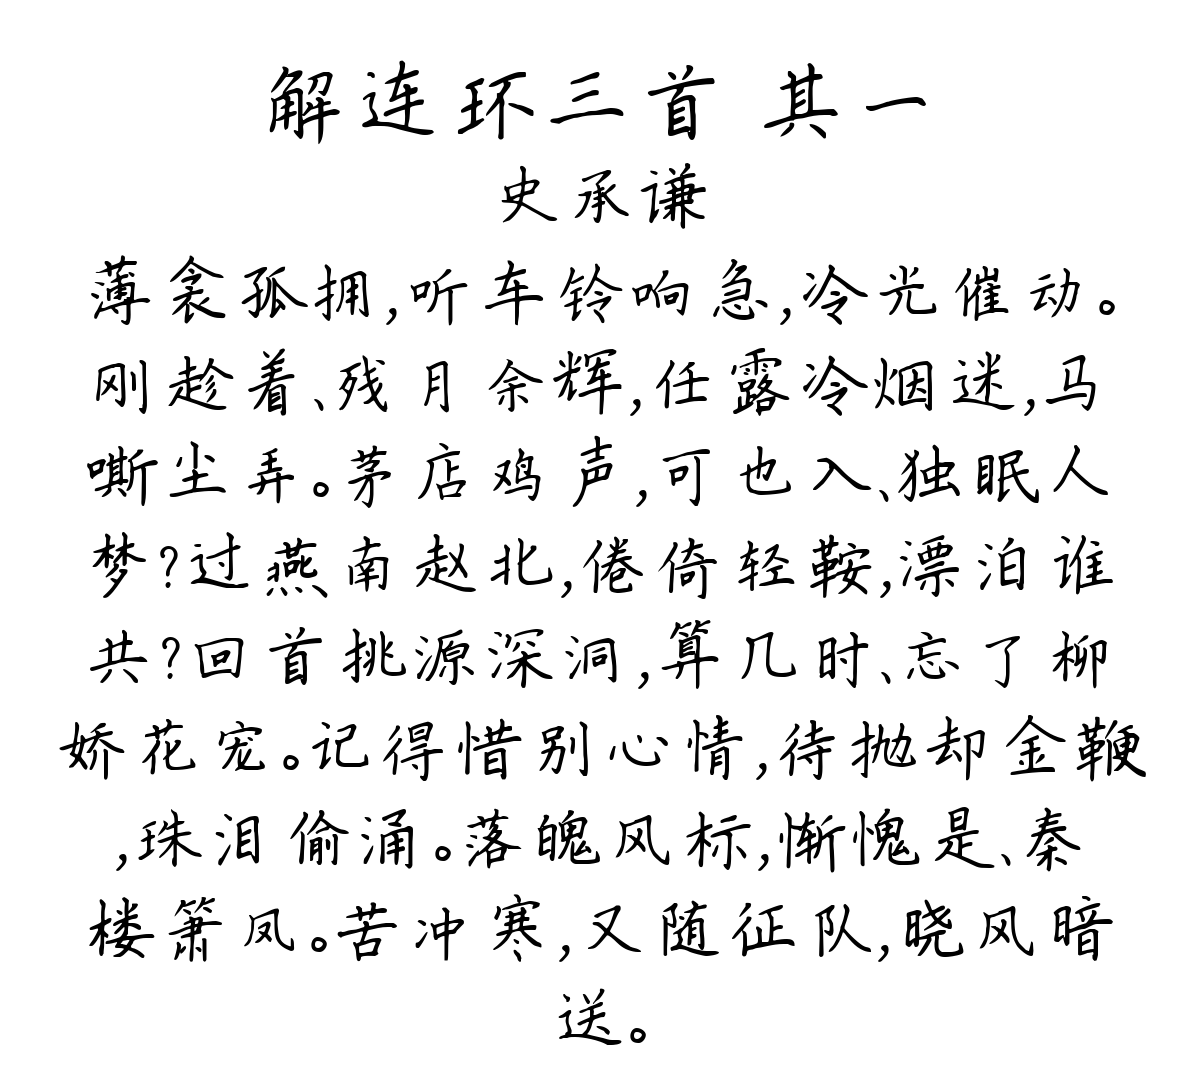 解连环三首 其一
史承谦
薄衾孤拥,听车铃响急,冷光催动。
刚趁着、残月余辉,任露冷烟迷,马
嘶尘弄。茅店鸡声,可也入、独眠人
梦?过燕南赵北,倦倚轻鞍,漂泊谁
共?回首挑源深洞,算几时、忘了柳
娇花宠。记得惜别心情,待抛却金鞭
,珠泪偷涌。落魄风标,惭愧是、秦
楼箫凤。苦冲寒,又随征队,晓风暗
送。